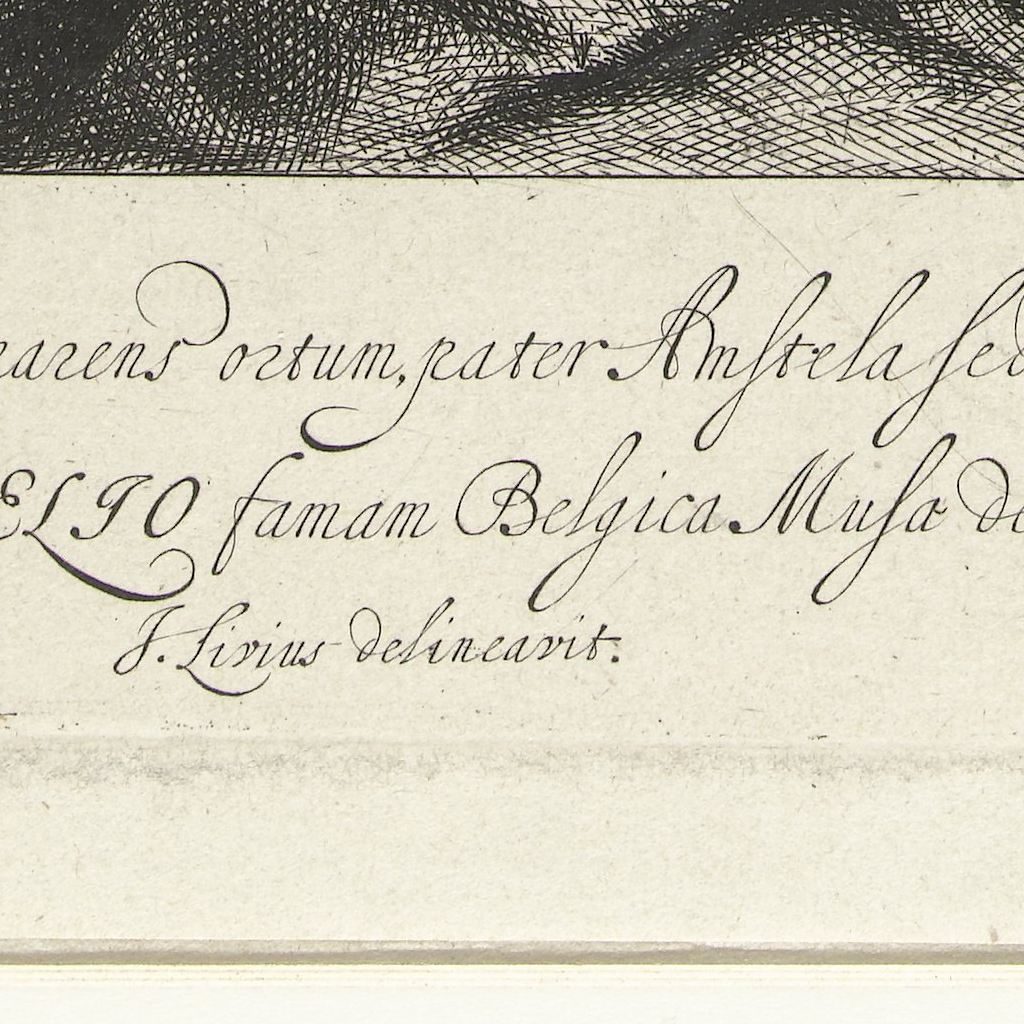 parens ortum, pater Amstela sed
ELIO famam Belgica Musa de
J. Livius delineavit.